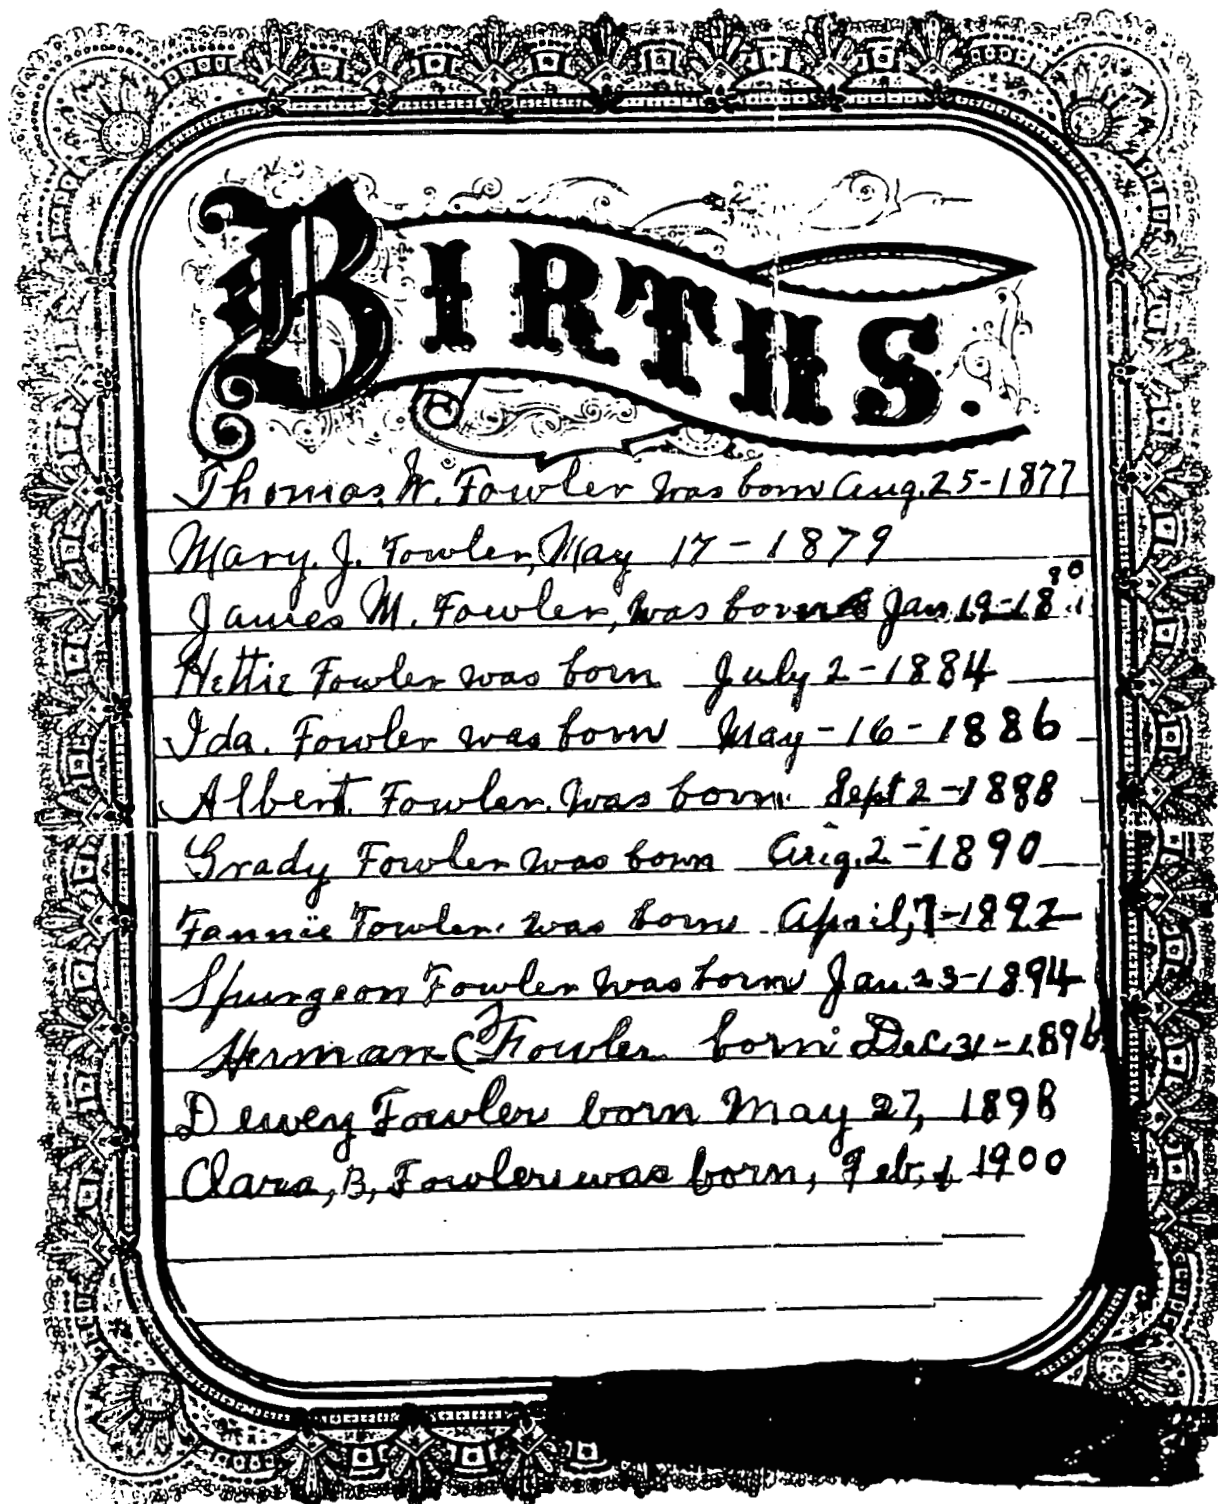 BIRTHS.
Thomas. W. Fowler was born Aug. 25-1877
Mary. J. Fowler, May 17-1879
James M. Fowler, was born Jan. 19-18
80
Hettie Fowler was born July 2-1884
Ida. Fowler was born May-16-1886
Albert. Fowler. was born. Sept 2-1888
Grady Fowler was born Aug. 2-1890
Fannie Fowler. was born April, 7-1892
Spurgeon Fowler was born Jan. 23-1894
Herman Fowler born Dec 31-1896
Dewey Fowler born May 27, 1898
Clara, B, Fowler was born, Feb, 1 1900